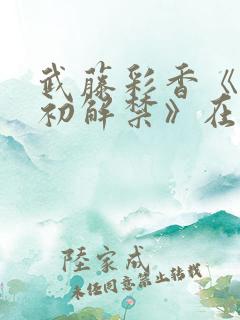 武藤彩香《
初解禁》在
陸家成
未经同意禁止转载